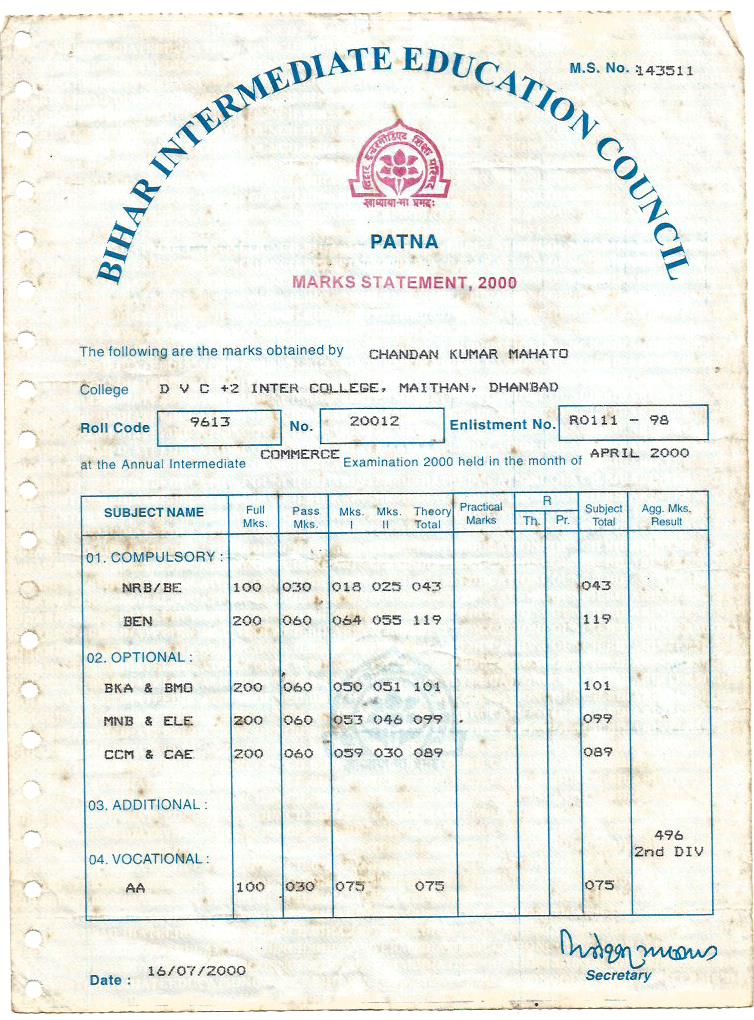 BIHAR INTERMEDIATE EDUCATION COUNCIL
M.S. No. : 143511
बिहार इन्टरमीडिएट शिक्षा परिषद
स्वाध्याया-मा प्रमदः
PATNA
MARKS STATEMENT, 2000
The following are the marks obtained by CHANDAN KUMAR MAHATO
College D V C +2 INTER COLLEGE, MAITHAN, DHANBAD
Roll Code 9613 No. 20012 Enlistment No. R0111 - 98
at the Annual Intermediate COMMERCE Examination 2000 held in the month of APRIL 2000
SUBJECT NAME Full Mks. Pass Mks. Mks. I Mks. II Theory Total Practical Marks R Th. Pr. Subject Total Agg. Mks. Result
01. COMPULSORY :
NRB/BE 100 030 018 025 043 043
BEN 200 060 064 055 119 119
02. OPTIONAL :
BKA & BMO 200 060 050 051 101 101
MNB & ELE 200 060 053 046 099 099
CCM & CAE 200 060 059 030 089 089
03. ADDITIONAL :
496
2nd DIV
04. VOCATIONAL :
AA 100 030 075 075 075
Date : 16/07/2000
Secretary